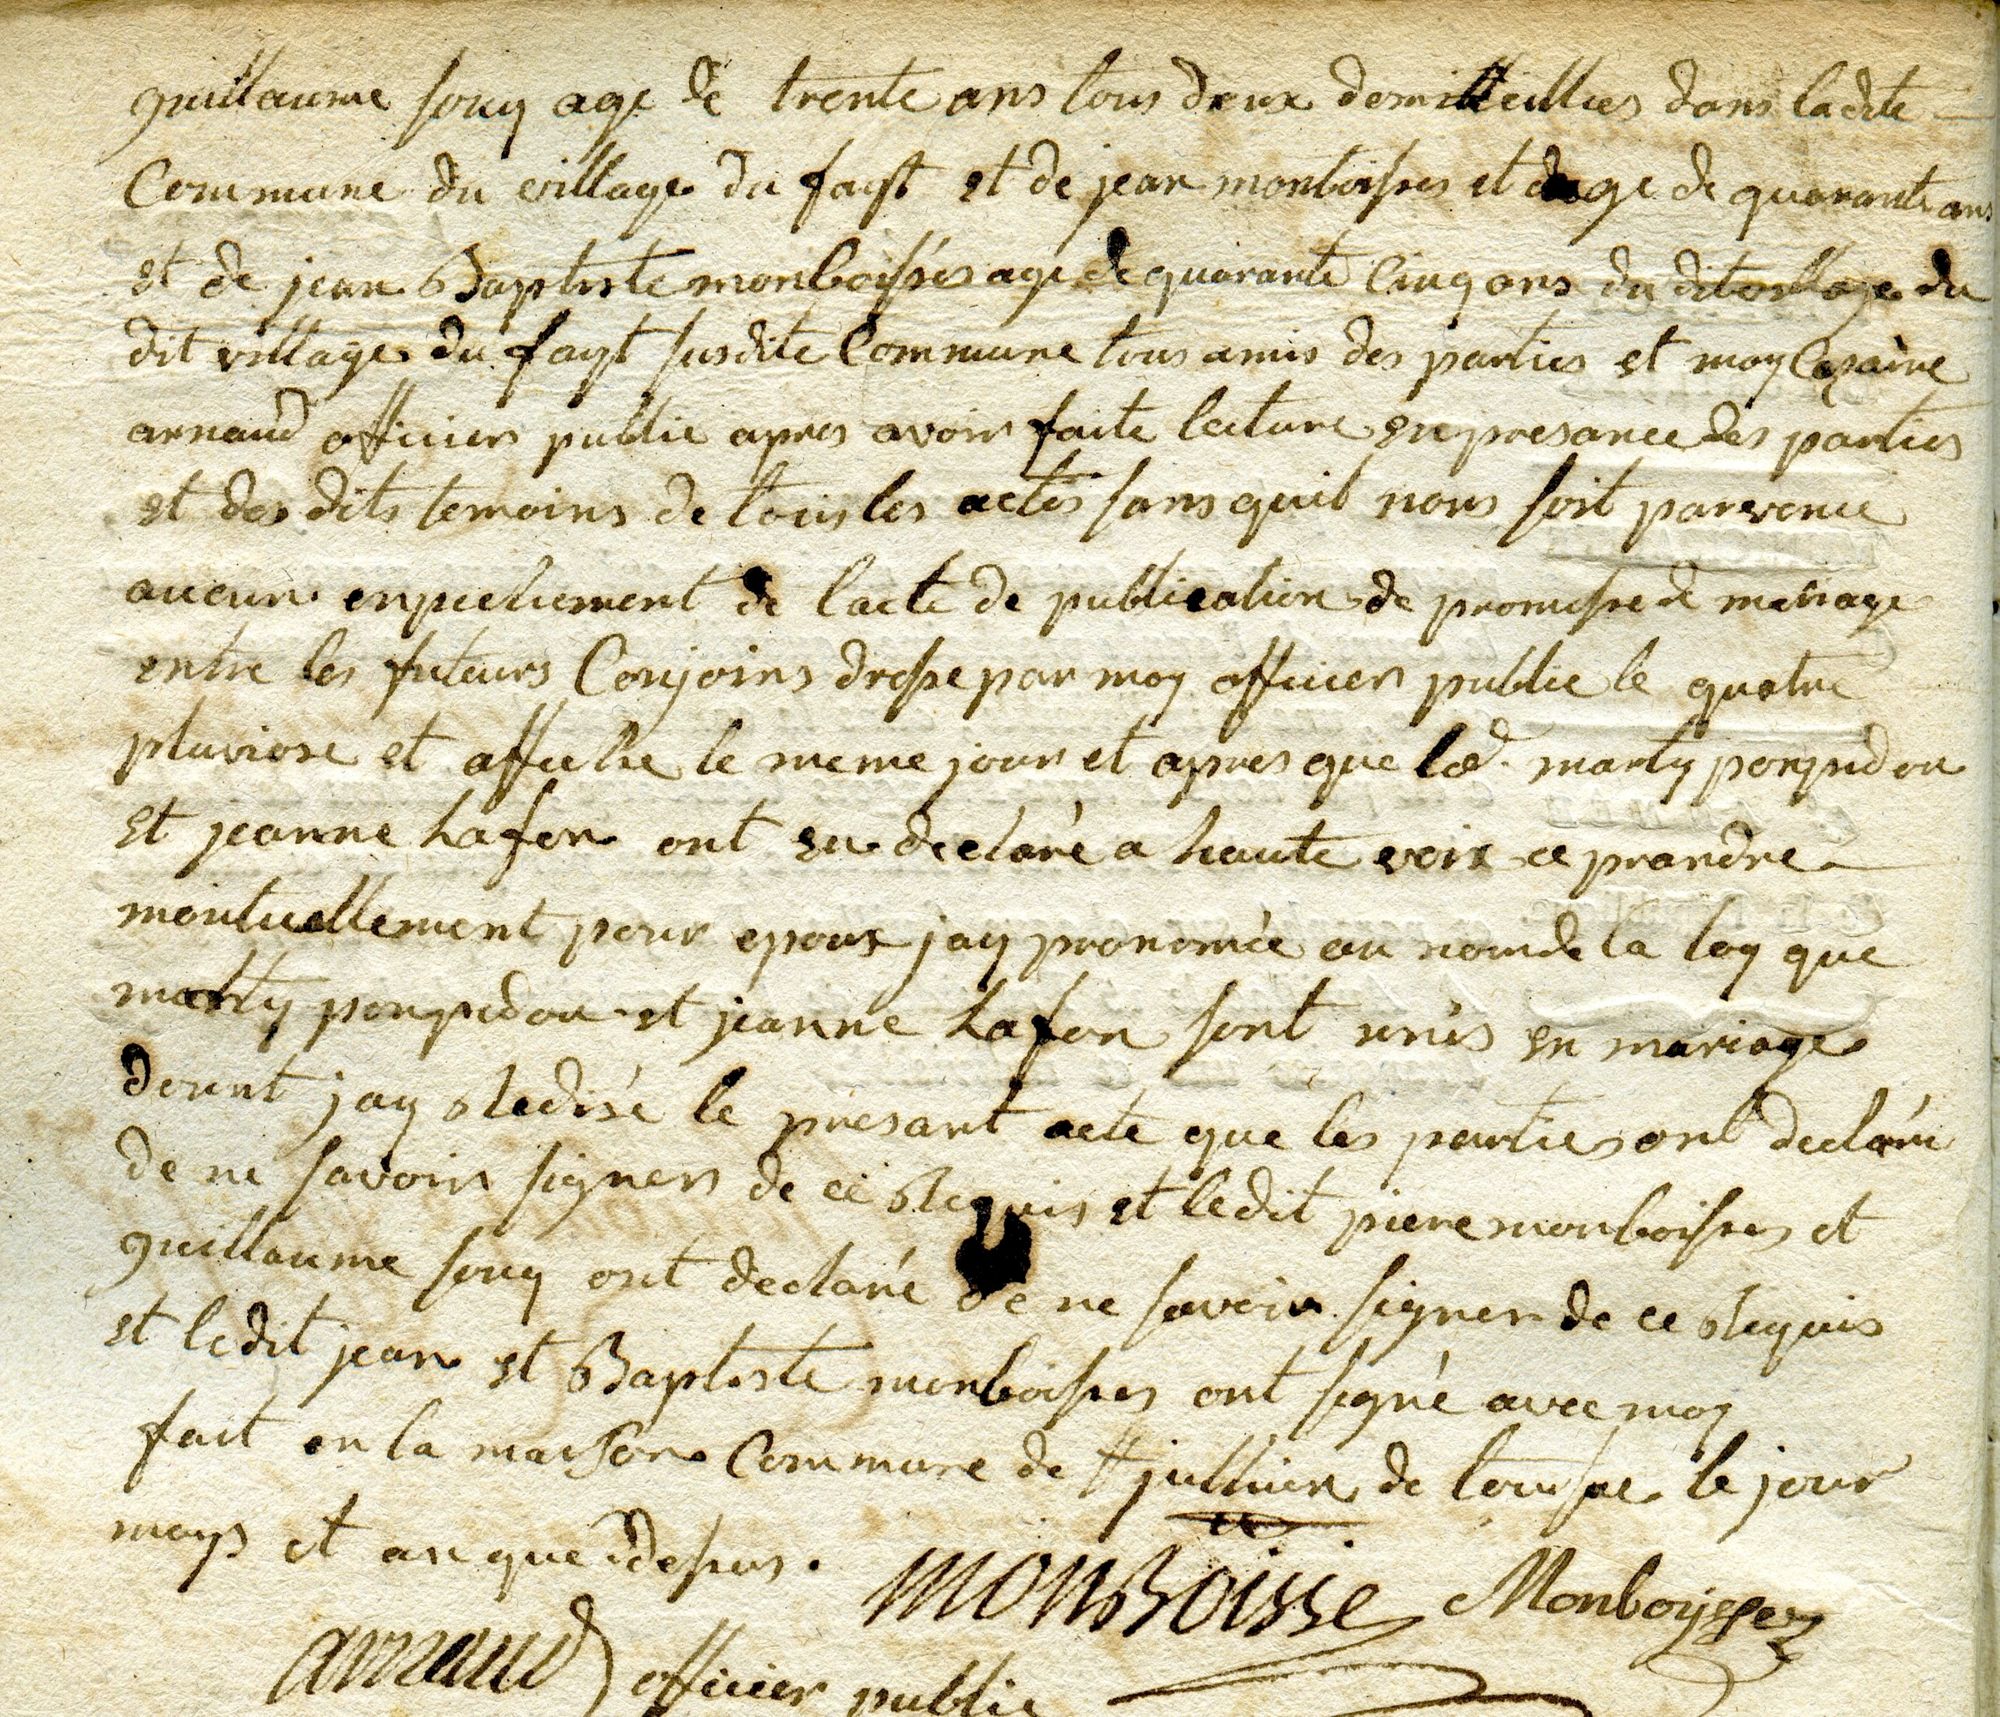 guillaume souq age de trente ans tous deux domicillies dans ladite
Commune du village du fayt et de jean monboisses et age de quarante ans
et de jean Baptiste monboisses age de quarante Cinq ans du dit village du
dit village du fayt susdite Commune tous amis des parties et moy
arnaud officier public apres avoir faite lecture en presance des parties
et des dits temoins de tous les actes sans quil nous soit parvenue
aucun enpechement de lacte de publication de promesse de mariage
entre les futeurs Conjoins dresse par moy officier public le quatre
pluviose et affiche le meme jour et apres que led. marty pompidou
et jeanne Lafon ont eu declaré a haute voix ce prandre
moutuellement pour epoux jay prononcée au nom de la loy que
marty pompidou et jeanne Lafon sont unis en mariage
dount jay redisé le presant acte que les parties ont declaré
de ne savoir signer de ce requis et ledit piere monboisses et
guillaume souq ont declaré de ne savoir signer de ce requis
et ledit jean et Baptiste monboisses ont signé avec moy
fait en la maison Commune de st jullien de le jour
moys et an que depus.
monBoisse Monboysses
arnaud officier public